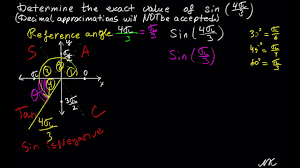 Determine the exact value of sin(4π/3)
(Decimal approximations will NOT be accepted)
Reference angle 4π/3 = π/3
Sin(4π/3)
Sin(π/3)
30° = π/6
45° = π/4
60° = π/3
S
y
A
π
0
x
3π/2
Tan
C
4π/3
Sin is negative